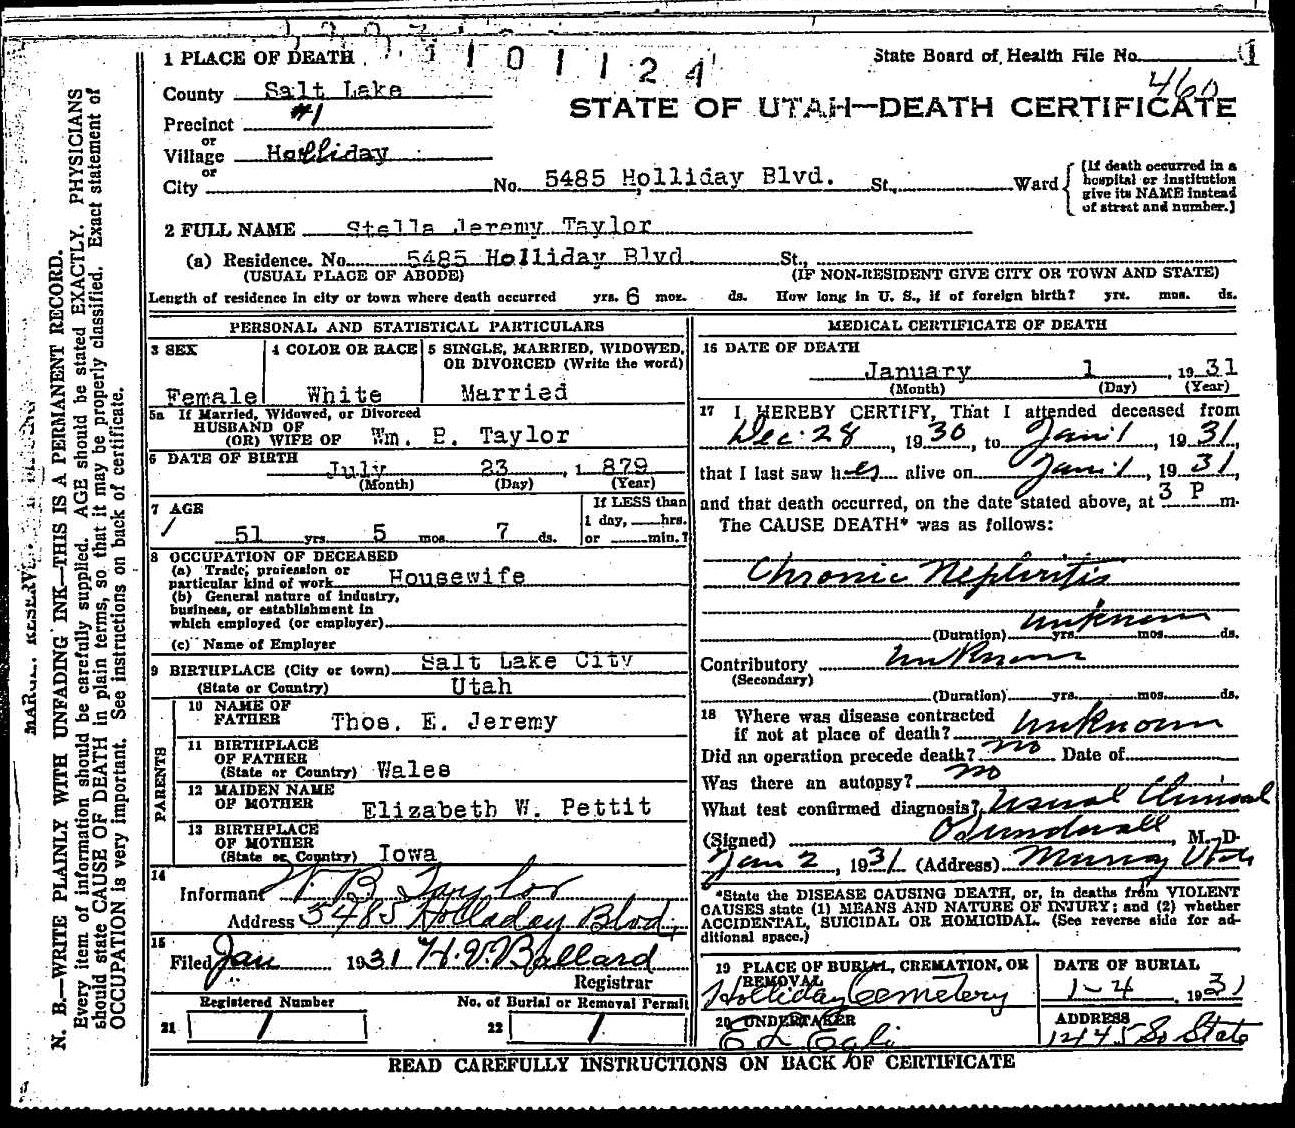 1 1 0 1 1 2 4
1 PLACE OF DEATH
State Board of Health File No. 1
460
County Salt Lake
STATE OF UTAH—DEATH CERTIFICATE
Precinct #1
or
Village Holliday
or
City No. 5485 Holliday Blvd. St., Ward
(If death occurred in a
hospital or institution
give its NAME instead
of street and number.)
2 FULL NAME Stella Jeremy Taylor
(a) Residence. No. 5485 Holliday Blvd St.,
(USUAL PLACE OF ABODE) (IF NON-RESIDENT GIVE CITY OR TOWN AND STATE)
Length of residence in city or town where death occurred yrs. 6 mos. ds. How long in U. S., if of foreign birth? yrs. mos. ds.
PERSONAL AND STATISTICAL PARTICULARS
3 SEX 4 COLOR OR RACE 5 SINGLE, MARRIED, WIDOWED,
OR DIVORCED (Write the word)
Female White Married
5a If Married, Widowed, or Divorced
HUSBAND OF
(OR) WIFE OF Wm. B. Taylor
6 DATE OF BIRTH July 23, 1879
(Month) (Day) (Year)
7 AGE
51 yrs. 5 mos. 7 ds.
If LESS than
1 day, hrs.
or min.?
8 OCCUPATION OF DECEASED
(a) Trade, profession or
particular kind of work Housewife
(b) General nature of industry,
business, or establishment in
which employed (or employer)
(c) Name of Employer
9 BIRTHPLACE (City or town) Salt Lake City
(State or Country) Utah
PARENTS
10 NAME OF
FATHER Thos. E. Jeremy
11 BIRTHPLACE
OF FATHER
(State or Country) Wales
12 MAIDEN NAME
OF MOTHER Elizabeth W. Pettit
13 BIRTHPLACE
OF MOTHER
(State or Country) Iowa
14
Informant W. B. Taylor
Address 5485 Holladay Blvd,
15
Filed Jan 1931 H. V. Ballard
Registrar
Registered Number No. of Burial or Removal Permit
21 1 22 1
MEDICAL CERTIFICATE OF DEATH
16 DATE OF DEATH
January 1, 1931
(Month) (Day) (Year)
17 I HEREBY CERTIFY, That I attended deceased from
Dec. 28, 1930, to Jan. 1, 1931,
that I last saw her alive on Jan. 1, 1931,
and that death occurred, on the date stated above, at 3 P m.
The CAUSE DEATH* was as follows:
Chronic Nephritis
unknown
(Duration) yrs. mos. ds.
Contributory unknown
(Secondary)
(Duration) yrs. mos. ds.
18 Where was disease contracted
if not at place of death? unknown
Did an operation precede death? no Date of
Was there an autopsy? no
What test confirmed diagnosis? usual Clinical
(Signed) M.-D.
Jan 2, 1931 (Address) Murray Utah
*State the DISEASE CAUSING DEATH, or, in deaths from VIOLENT
CAUSES state (1) MEANS AND NATURE OF INJURY; and (2) whether
ACCIDENTAL, SUICIDAL OR HOMICIDAL. (See reverse side for ad-
ditional space.)
19 PLACE OF BURIAL, CREMATION, OR
REMOVAL
Holliday Cemetery
DATE OF BURIAL
1-4, 1931
20 UNDERTAKER
E L Egli
ADDRESS
1245 So State
READ CAREFULLY INSTRUCTIONS ON BACK OF CERTIFICATE
N. B.—WRITE PLAINLY WITH UNFADING INK—THIS IS A PERMANENT RECORD.
Every item of information should be carefully supplied. AGE should be stated EXACTLY. PHYSICIANS
should state CAUSE OF DEATH in plain terms, so that it may be properly classified. Exact statement of
OCCUPATION is very important. See instructions on back of certificate.